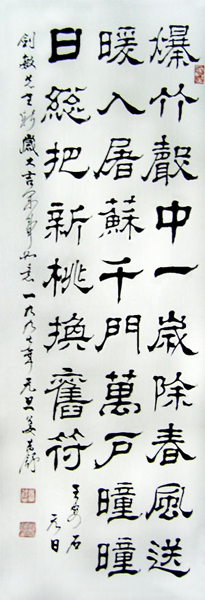 爆竹聲中一歲除春風送
暖入屠蘇千門萬戶曈曈
日總把新桃換舊符
王安石
元日
劍敏先生新歲大吉萬事如意一九九七年元旦姜